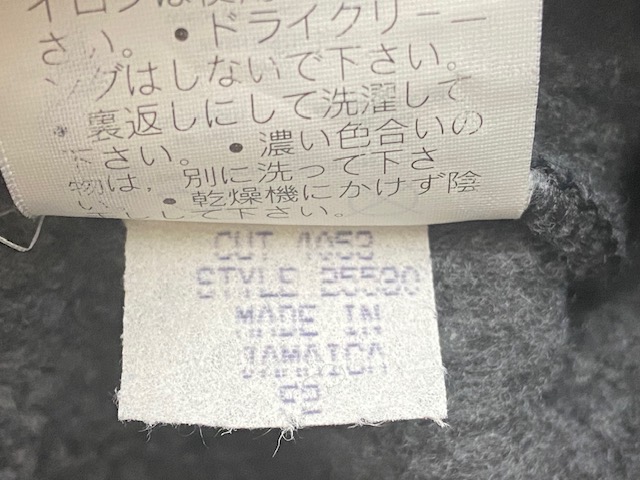 さい。 • ドライクリーニ
ングはしないで下さい。
• 裏返しにして洗濯して
下さい。 • 濃い色合いの
物は、別に洗って下さ
い。 • 乾燥機にかけず陰
干しして下さい。
CUT 4053
STYLE 25590
MADE IN
JAMAICA